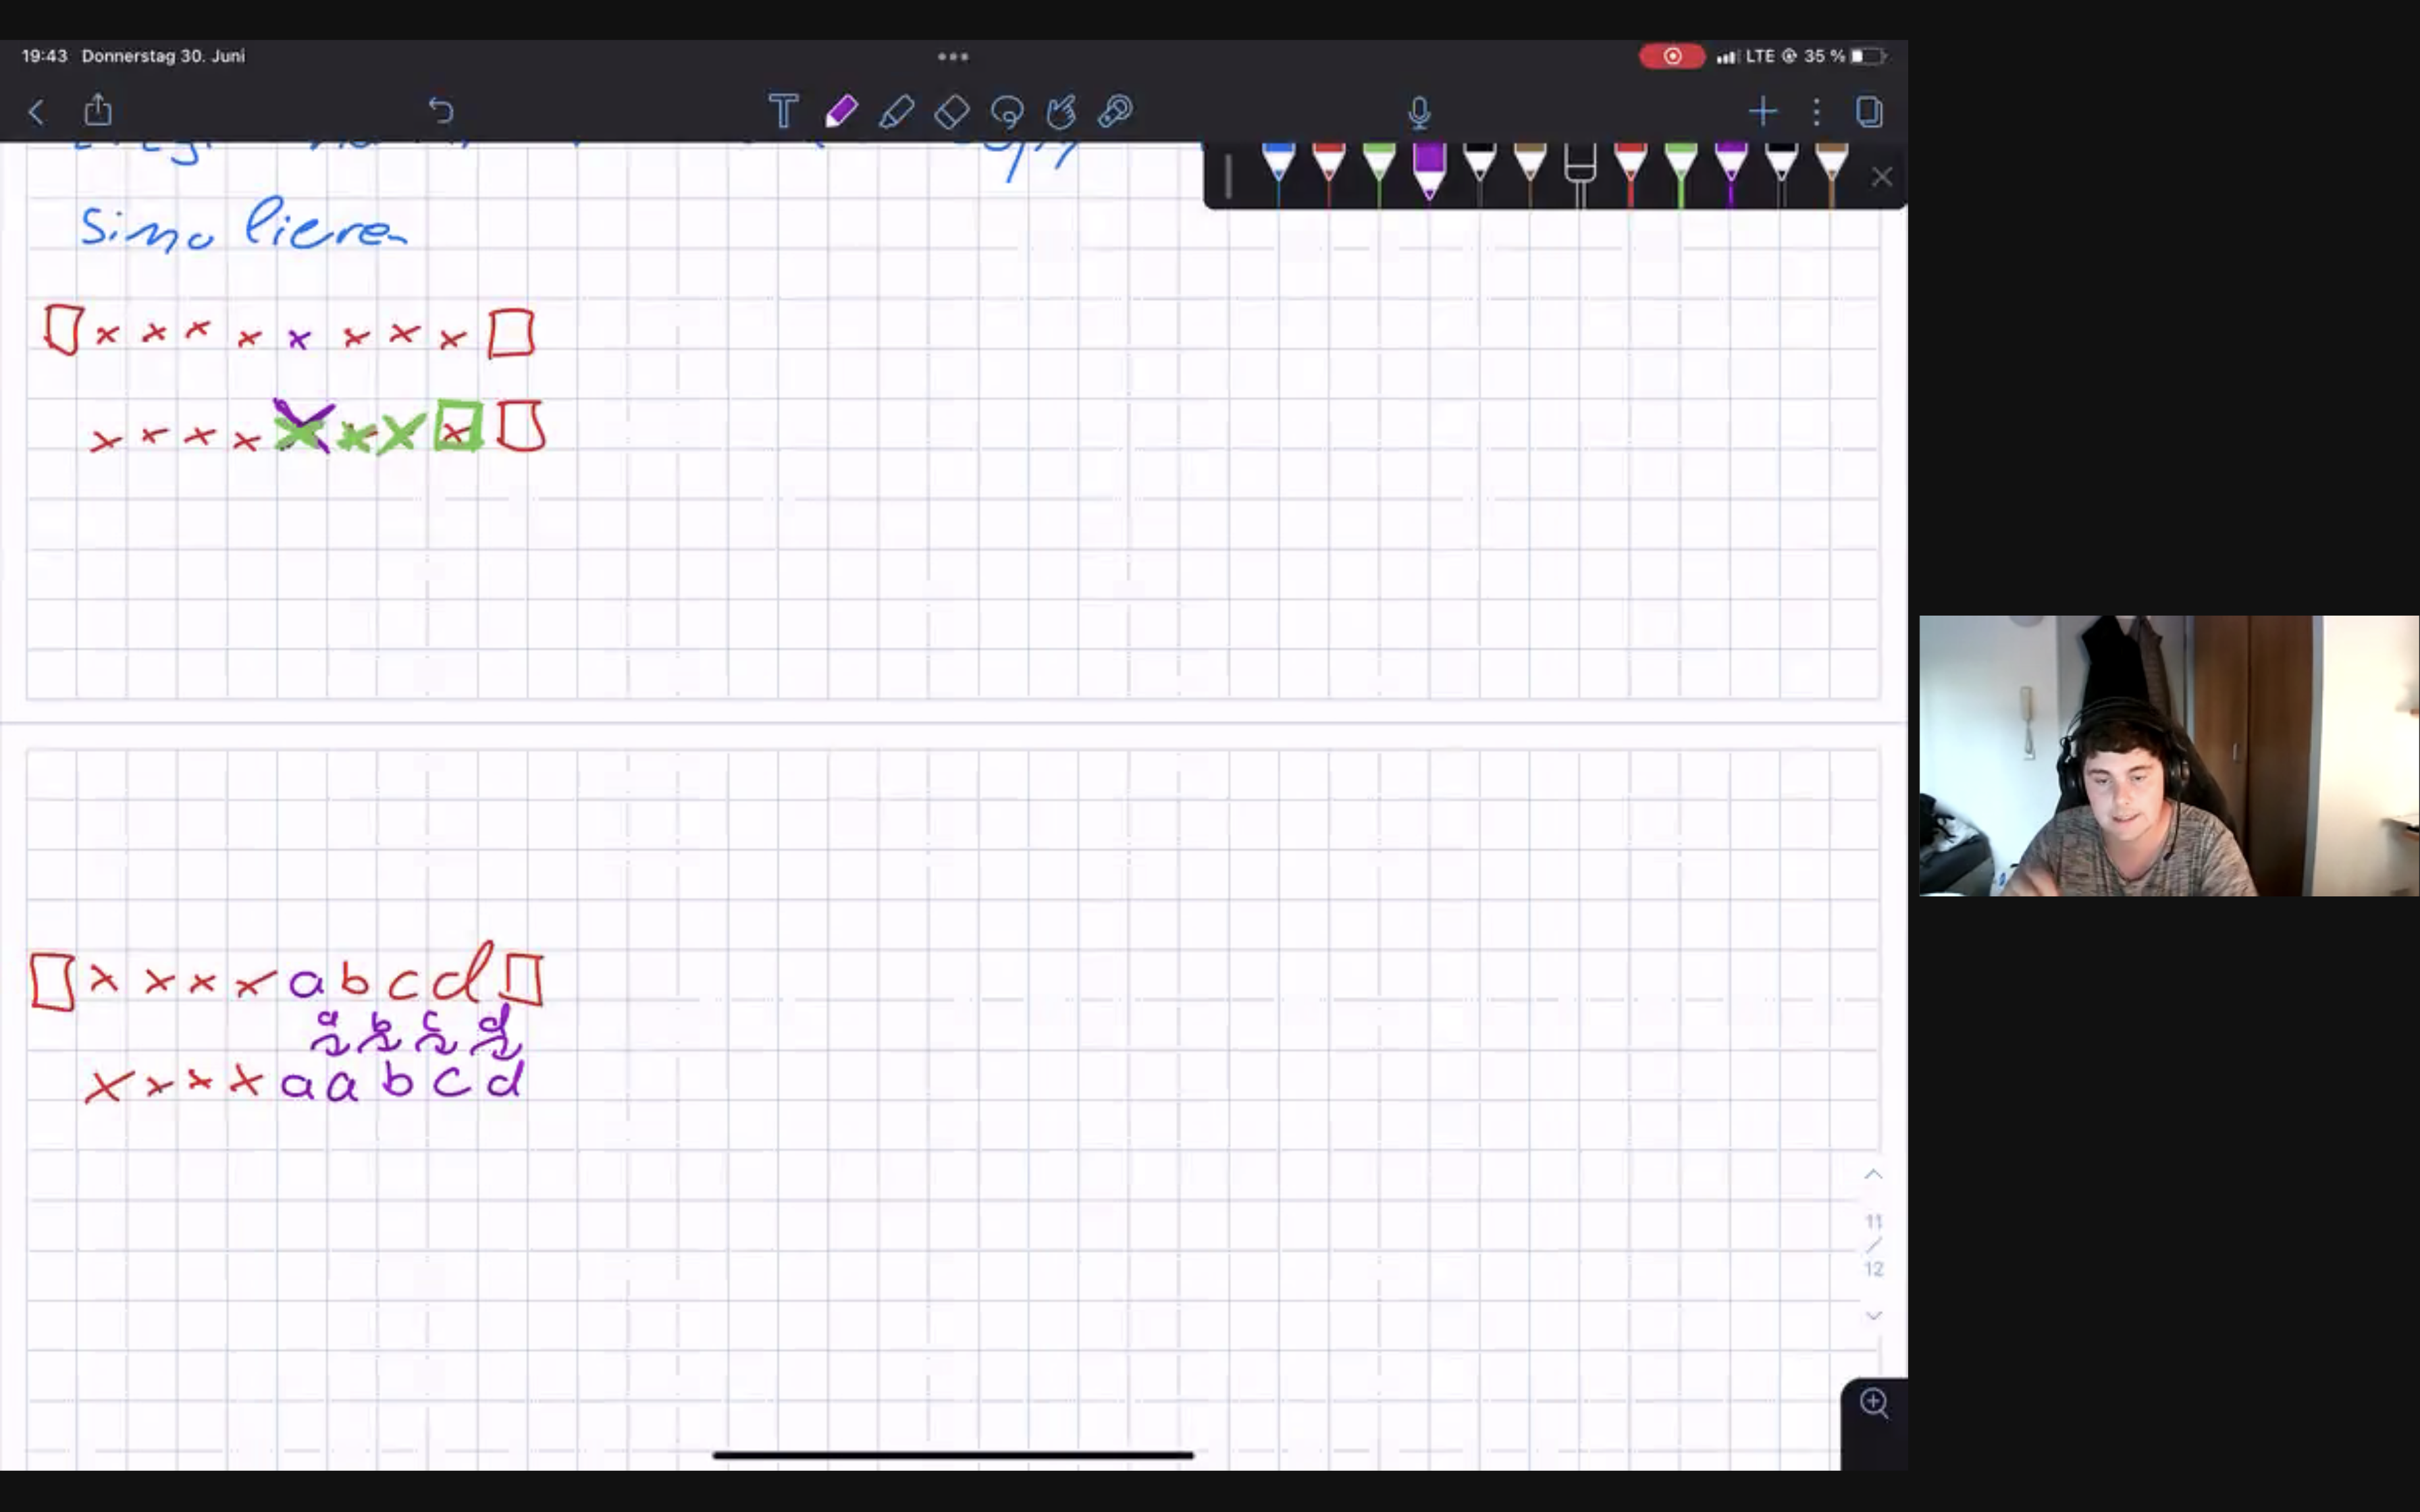 19:43 Donnerstag 30. Juni
LTE 35 %
T
Simulieren
x x x x x x x x
x x x x x x x x
x x x x a b c d
a b c d
x x x x a a b c d
11
/
12